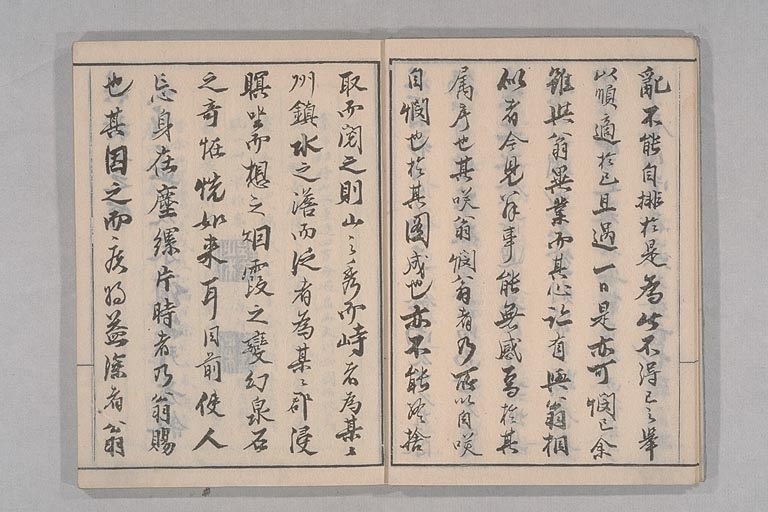 亂不能自排於是為此不得已之舉
以順適於己且過一日是亦可憫已余
雖與翁異業而其心許有與翁相
似者今見翁事能無感焉於其
属序也其咲翁憫翁者乃所以自咲
自憫也於其圖成也亦不能終捨
取而閱之則山之秀而峙者為某々
州鎮水之濶而泛者為某々郡浸
瞑坐而想之烟霞之變幻泉石
之奇怪恍如来耳目前使人
忘身在塵縲片時者乃翁賜
也其因之而疾为益深者翁